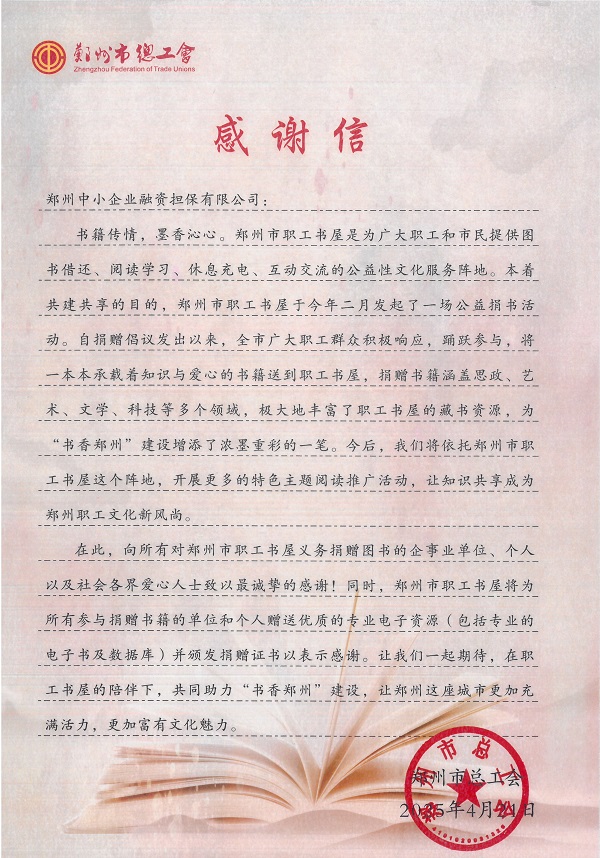 鄭州市總工會
Zhengzhou Federation of Trade Unions
感谢信
郑州中小企业融资担保有限公司：
书籍传情，墨香沁心。郑州市职工书屋是为广大职工和市民提供图
书借还、阅读学习、休息充电、互动交流的公益性文化服务阵地。本着
共建共享的目的，郑州市职工书屋于今年二月发起了一场公益捐书活
动。自捐赠倡议发出以来，全市广大职工群众积极响应，踊跃参与，将
一本本承载着知识与爱心的书籍送到职工书屋，捐赠书籍涵盖思政、艺
术、文学、科技等多个领域，极大地丰富了职工书屋的藏书资源，为
“书香郑州”建设增添了浓墨重彩的一笔。今后，我们将依托郑州市职
工书屋这个阵地，开展更多的特色主题阅读推广活动，让知识共享成为
郑州职工文化新风尚。
在此，向所有对郑州市职工书屋义务捐赠图书的企事业单位、个人
以及社会各界爱心人士致以最诚挚的感谢！同时，郑州市职工书屋将为
所有参与捐赠书籍的单位和个人赠送优质的专业电子资源（包括专业的
电子书及数据库）并颁发捐赠证书以表示感谢。让我们一起期待，在职
工书屋的陪伴下，共同助力“书香郑州”建设，让郑州这座城市更加充
满活力，更加富有文化魅力。
郑州市总工会
郑州市总工会
2025年4月21日